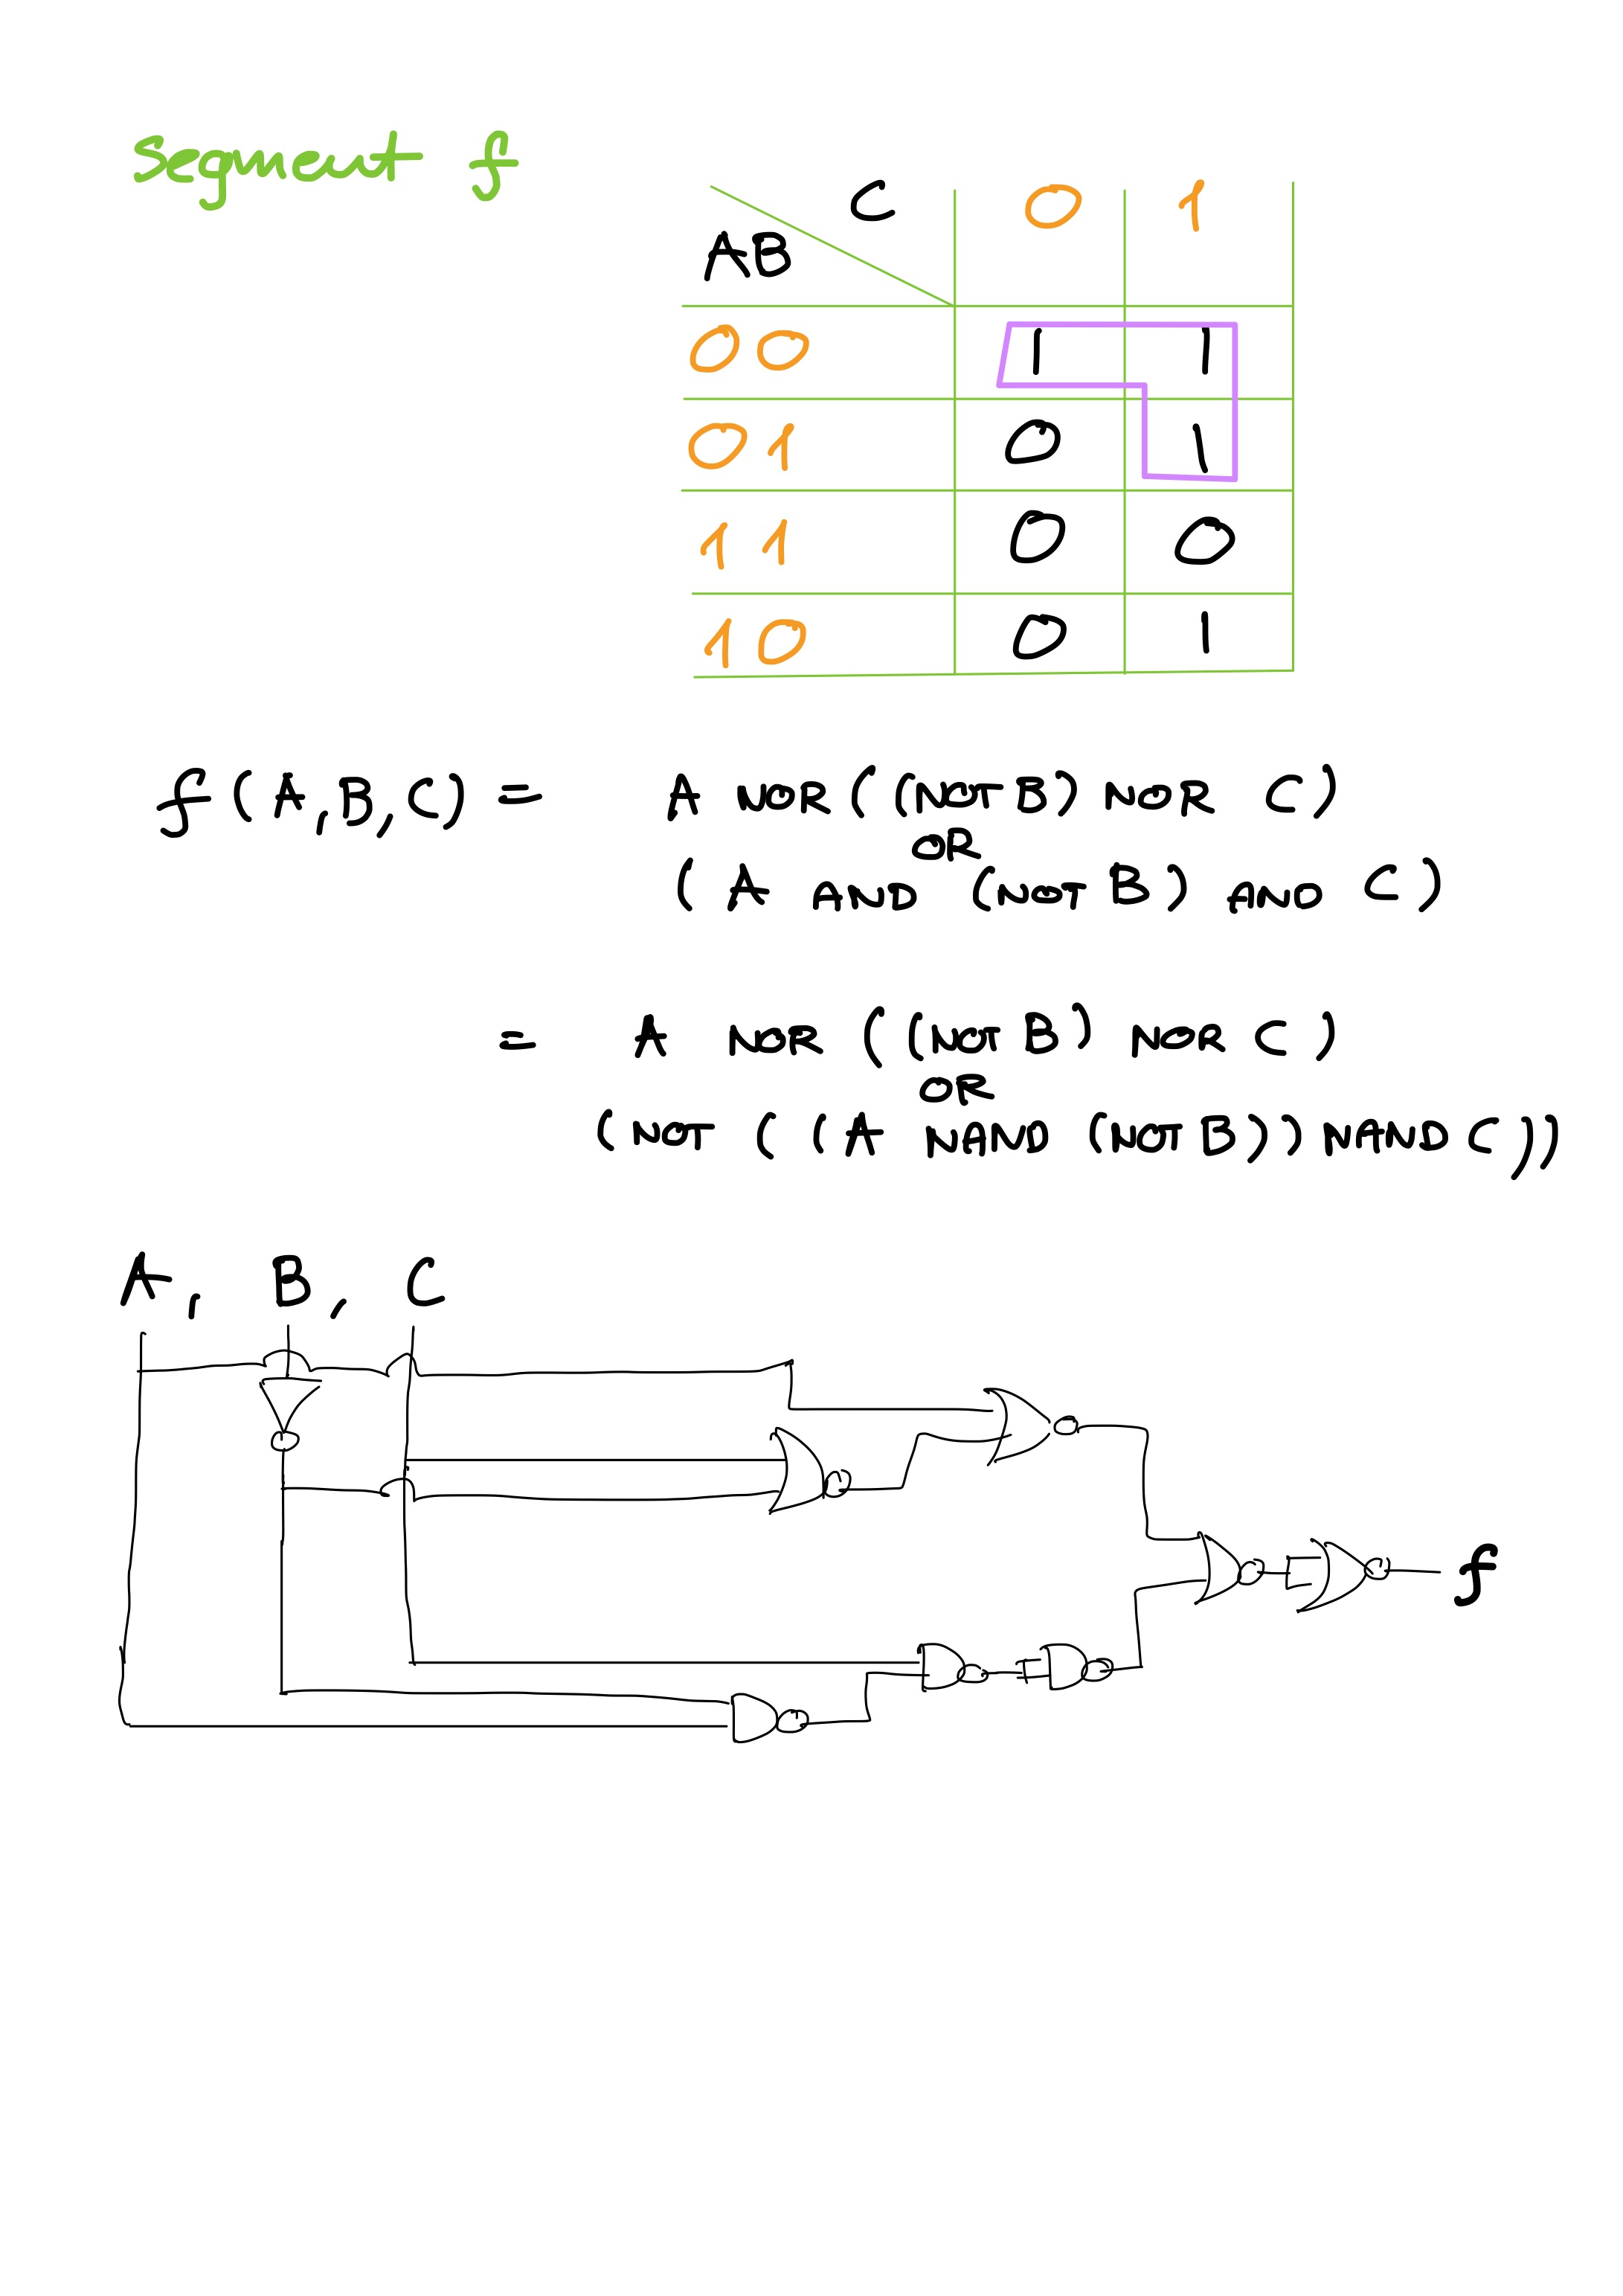 Segment f
C 0 1
AB
00 1 1
01 0 1
11 0 0
10 0 1
f(A,B,C) = A NOR ((NOT B) NOR C)
OR
(A AND (NOT B) AND C)
= A NOR ((NOT B) NOR C)
OR
(NOT ((A NAND (NOT B)) NAND C))
A, B, C
f